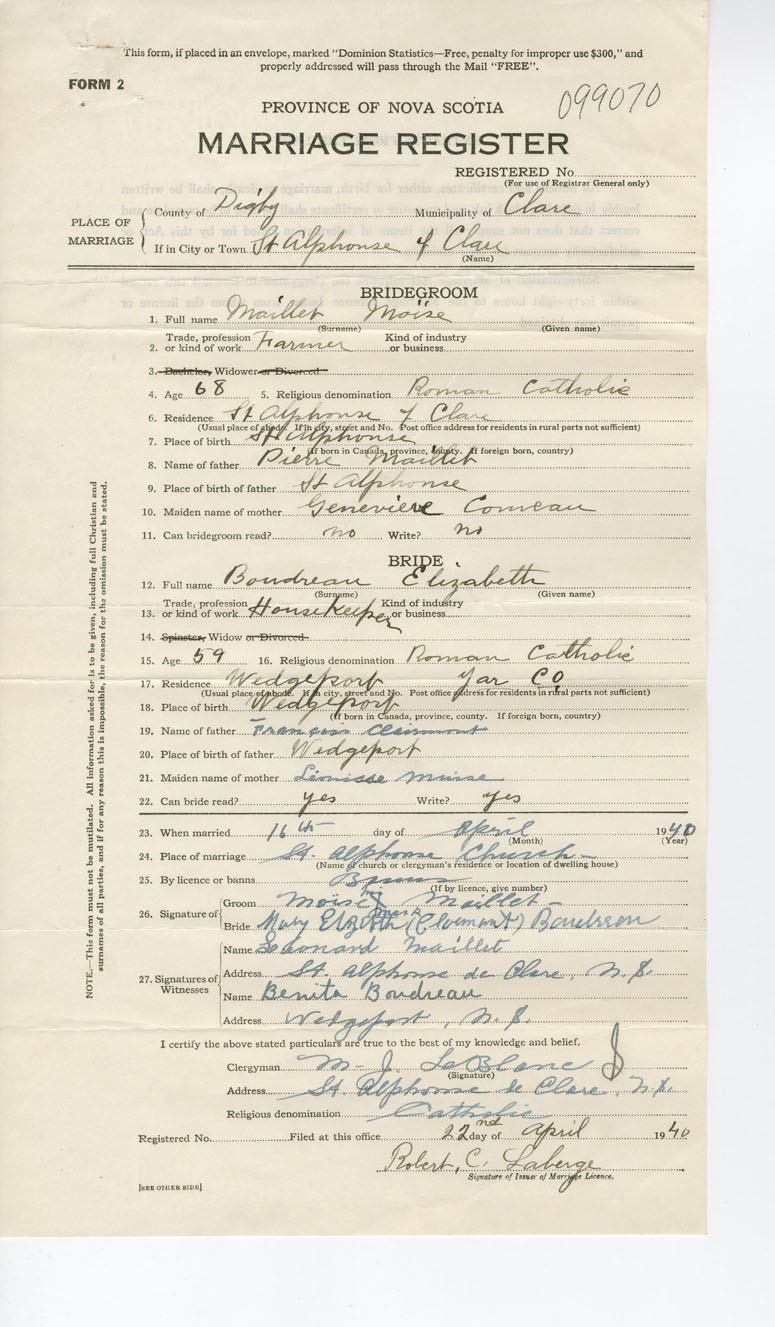 This form, if placed in an envelope, marked "Dominion Statistics—Free, penalty for improper use $300," and
properly addressed will pass through the Mail "FREE".
FORM 2
PROVINCE OF NOVA SCOTIA
099070
MARRIAGE REGISTER
REGISTERED No.
(For use of Registrar General only)
PLACE OF MARRIAGE
County of Digby Municipality of Clare
If in City or Town St Alphonse of Clare
(Name)
BRIDEGROOM
1. Full name Maillet Moïse
(Surname) (Given name)
2. Trade, profession or kind of work Farmer Kind of industry or business
3. Bachelor, Widower or Divorced
4. Age 68 5. Religious denomination Roman Catholic
6. Residence St Alphonse of Clare
(Usual place of abode. If in city, street and No. Post office address for residents in rural parts not sufficient)
7. Place of birth St Alphonse
(If born in Canada, province, county. If foreign born, country)
8. Name of father Pierre Maillet
9. Place of birth of father St Alphonse
10. Maiden name of mother Genevieve Comeau
11. Can bridegroom read? no Write? no
BRIDE
12. Full name Boudreau Elizabeth
(Surname) (Given name)
13. Trade, profession or kind of work Housekeeper Kind of industry or business
14. Spinster, Widow or Divorced
15. Age 59 16. Religious denomination Roman Catholic
17. Residence Wedgeport Yar Co
(Usual place of abode. If in city, street and No. Post office address for residents in rural parts not sufficient)
18. Place of birth Wedgeport
(If born in Canada, province, county. If foreign born, country)
19. Name of father Francois Clairmont
20. Place of birth of father Wedgeport
21. Maiden name of mother Muise
22. Can bride read? yes Write? yes
23. When married 16th day of April 1940
(Month) (Year)
24. Place of marriage St. Alphonse Church
(Name of church or clergyman's residence or location of dwelling house)
25. By licence or banns Banns
(If by licence, give number)
26. Signature of
Groom Moïse Maillet
mark
Bride Mary Elizbeth
27. Signatures of Witnesses
Name Leonard Maillet
Address St. Alphonse de Clare, N.S.
Name Benita Boudreau
Address Wedgeport, N.S.
I certify the above stated particulars are true to the best of my knowledge and belief.
Clergyman M. J. LeBlanc
(Signature)
Address St. Alphonse de Clare, N.S.
Religious denomination Catholic
Registered No. Filed at this office 22nd day of April 1940
Robert C. Laberge
Signature of Issuer of Marriage Licence.
[SEE OTHER SIDE]
NOTE.—This form must not be mutilated. All information asked for is to be given, including full Christian and
surnames of all parties, and if for any reason this is impossible, the reason for the omission must be stated.